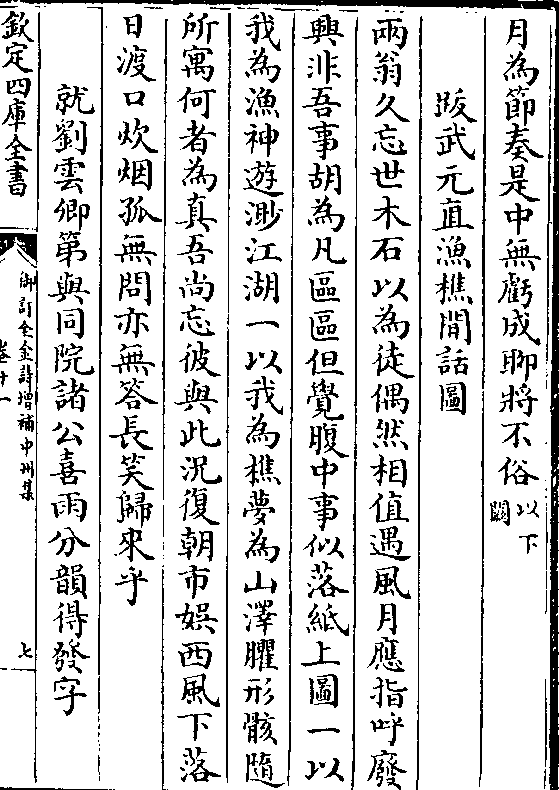 月為節奏是中無虧成聊將不俗以下闕
跋武元直漁樵閒話圖
兩翁久忘世木石以為徒偶然相值遇風月應指呼廢
興非吾事胡為凡區區但覺腹中事似落紙上圖一以
我為漁神遊渺江湖一以我為樵夢為山澤臞形骸隨
所寓何者為真吾尚忘彼與此況復朝市娛西風下落
日渡口炊烟孤無問亦無答長笑歸來乎
就劉雲卿第與同院諸公喜雨分韻得發字
欽定四庫全書
御訂全金詩增補中州集
卷十一
七